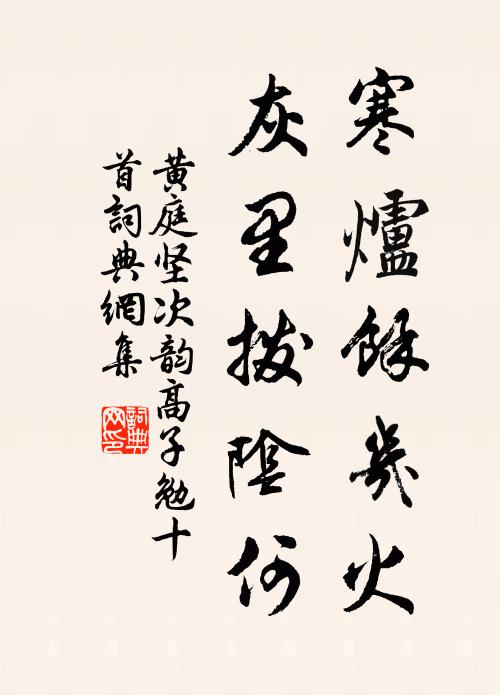 寒爐餘幾火
灰里撥陰何
黃庭坚次韵高子勉十
首詞典網集
詞典
网印